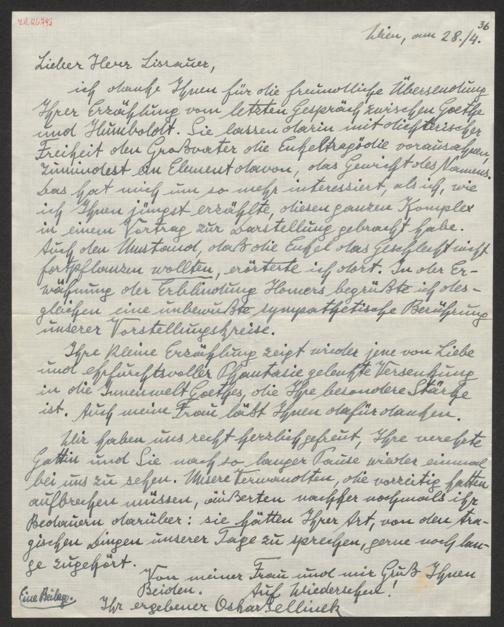 36
Wien, am 28./4.
Lieber Herr Lissauer,
ich danke Ihnen für die freundliche Übersendung
Ihrer Erzählung vom letzten Gespräch zwischen Goethe
und Humboldt. Sie lassen darin mit dichterischer
Freiheit den Großvater die Enkeltragödie voraussahnen,
zumindest ein Element davon, das Gewicht des Namens.
Das hat mich um so mehr interessiert, als ich, wie
ich Ihnen jüngst erzählte, diesen ganzen Komplex
in einem Vortrag zur Darstellung gebracht habe.
Auch den Umstand, daß die Enkel das Geschlecht nicht
fortpflanzen wollten, erörterte ich dort. In der Er-
wähnung der Erblindung Homers begrüßte ich des-
gleichen eine unbewußte sympathetische Berührung
unserer Vorstellungskreise.
Ihre kleine Erzählung zeigt wieder jene von Liebe
und ehrfurchtsvoller Phantasie gelenkte Versenkung
in die Innenwelt Goethes, die Ihre besondere Stärke
ist. Auch meine Frau läßt Ihnen dafür danken.
Wir haben uns recht herzlich gefreut, Ihre verehrte
Gattin und Sie nach so langer Pause wieder einmal
bei uns zu sehen. Unsere Verwandten, die vorzeitig hatten
aufbrechen müssen, äußerten nachher nochmals ihr
Bedauern darüber: sie hätten Ihrer Art, von den tra-
gischen Dingen unserer Tage zu sprechen, gerne noch lan-
ge zugehört.
Von meiner Frau und mir Gruß Ihnen
Beiden. Auf Wiedersehen!
Eine Beilage.
Ihr ergebener Oskar Jellinek